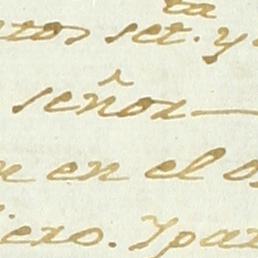 ta
tos set. y
señor
n en el o
iero. Ypar